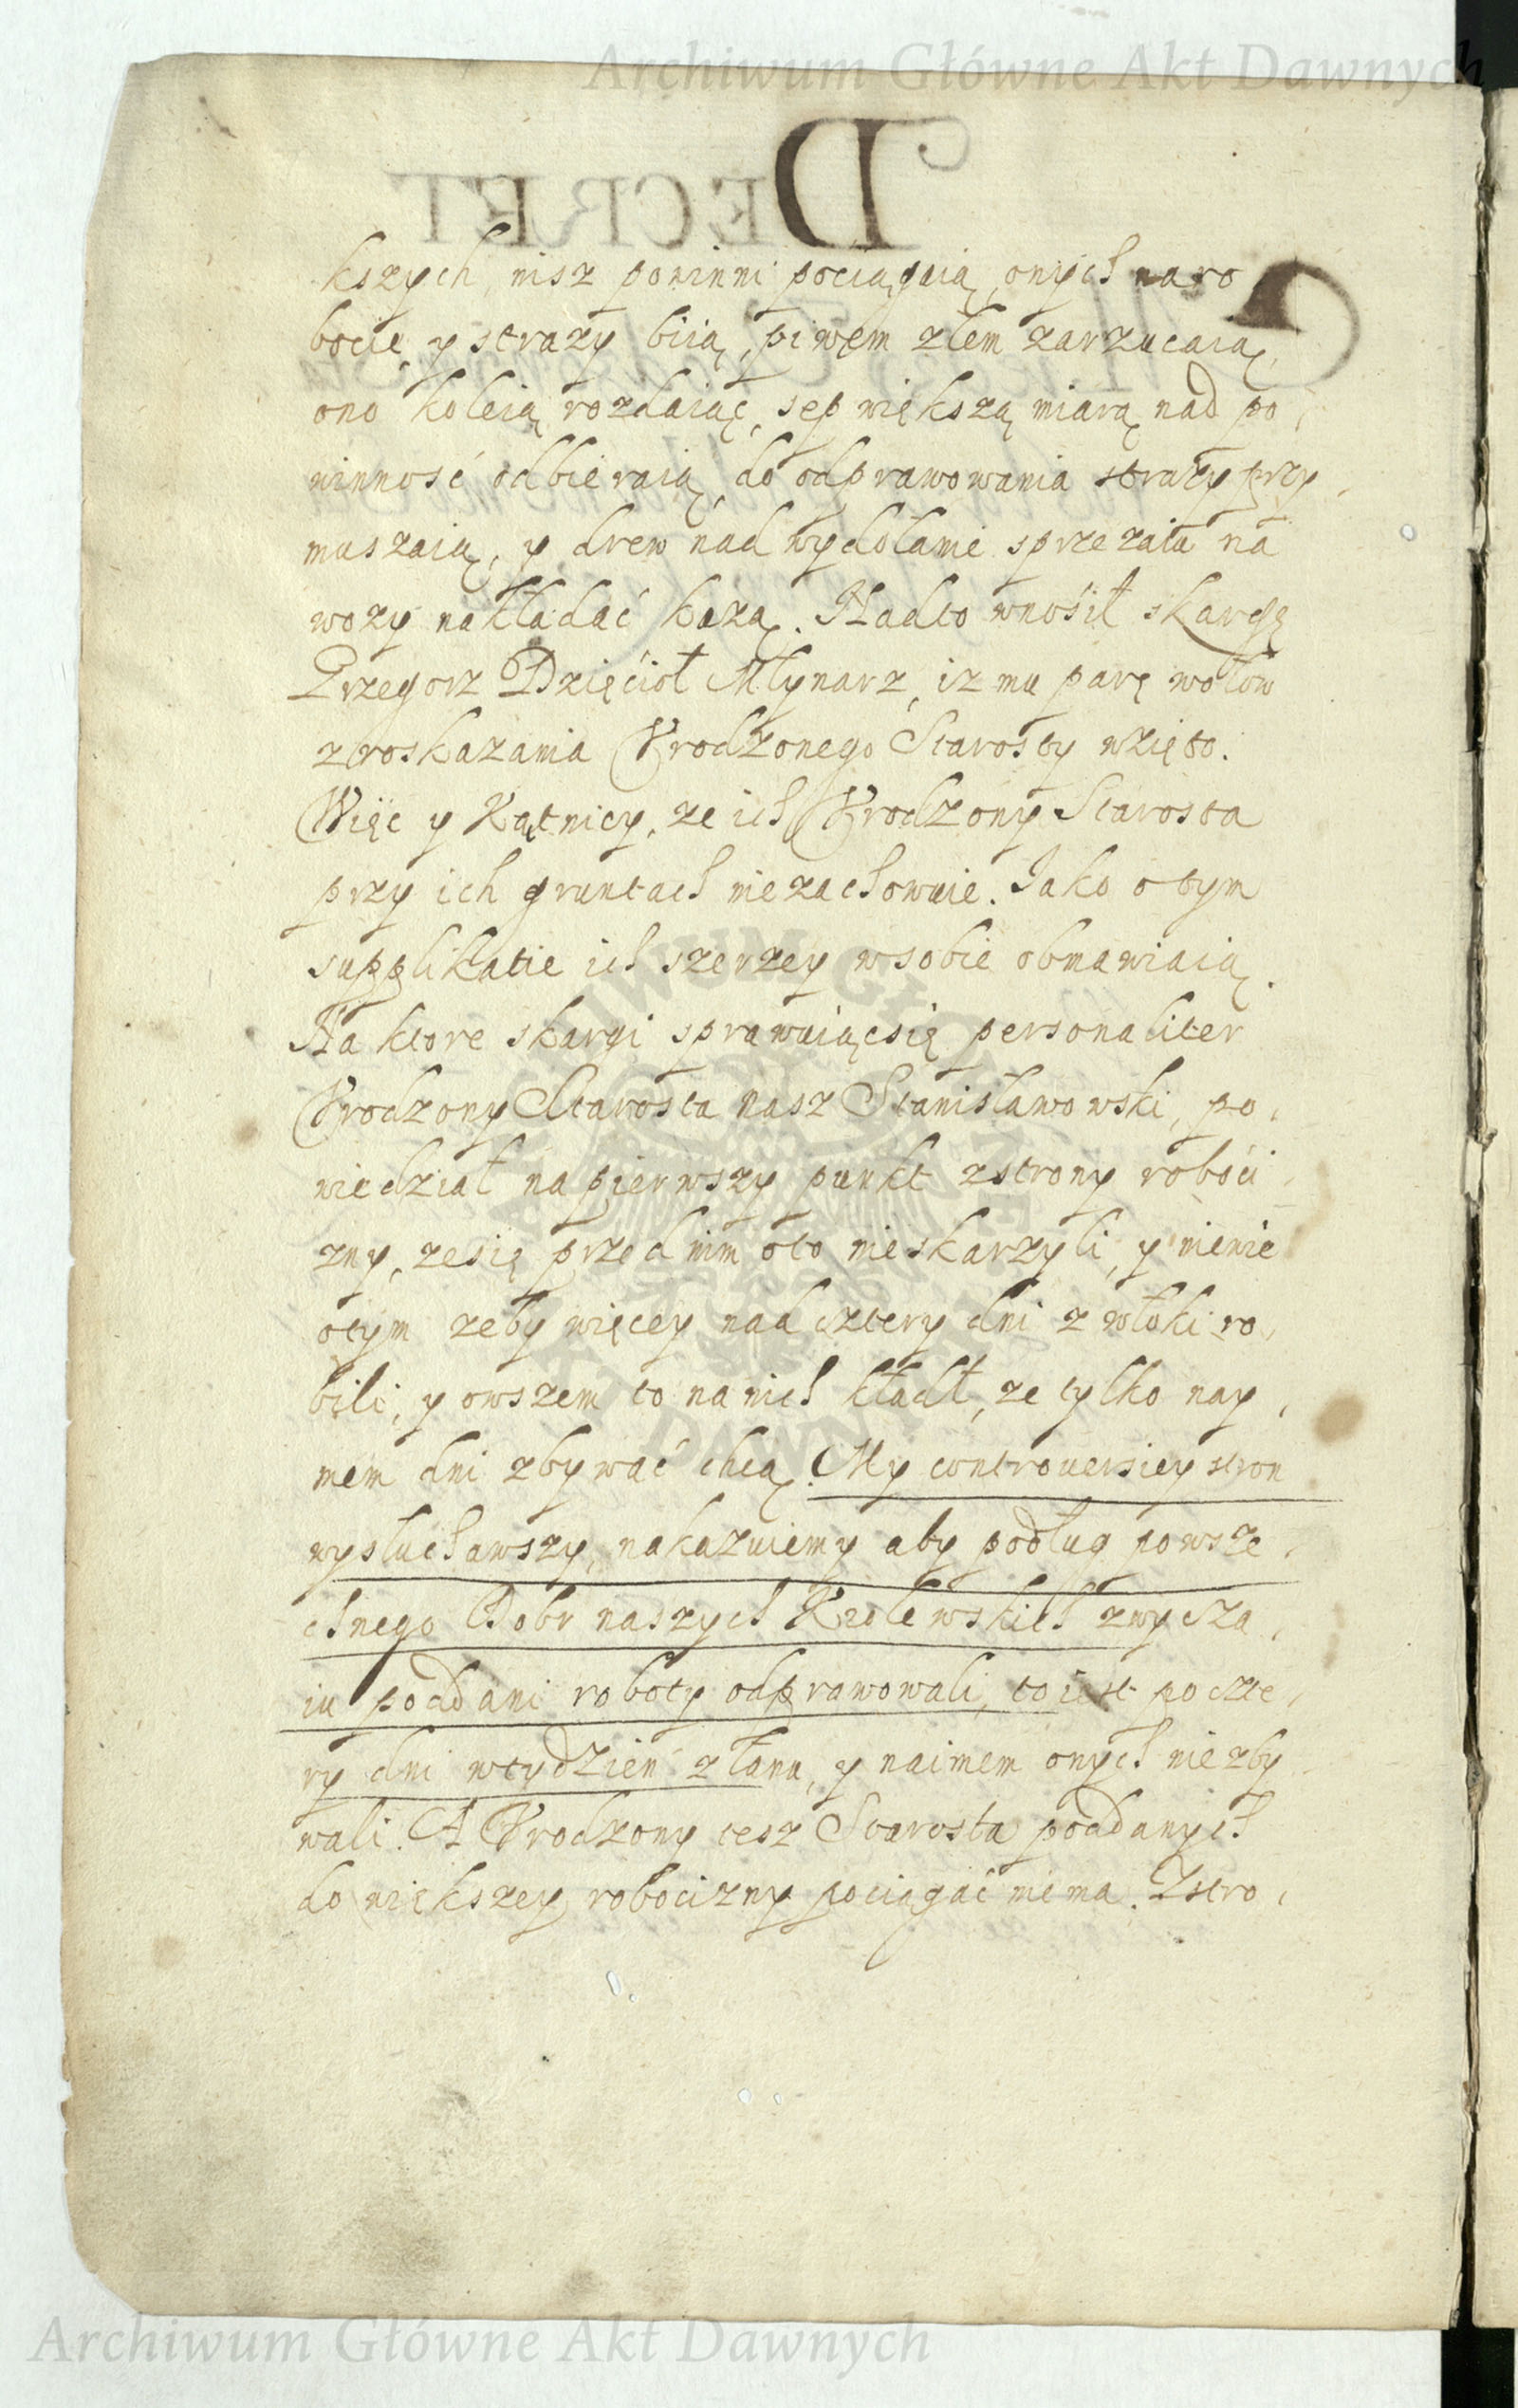 Archiwum Główne Akt Dawnych
DECRET
kszych nisz powinni pociągaią, onych na ro
bocie y straży biią, piwem złem zarzucaią,
ono koleią rozdaiąc, sep większą miarą nad po,
winność odbieraią, do odprawowania straży przy,
muszaią, y drew nad wydołame sprzezaiu na
wozy nakładać każą. Nadto wnosił skargę
Grzegorz Dzięcioł Młynarz, iz mu parę wołow
z roskazania Vrodzonego Starosty wzięto.
Więc y Kątnicy, ze ich Vrodzony Starosta
przy ich gruntach nie zachowuie. Iako o tym
supplikatie ich szerzey w sobie obmawiaią.
Na ktore skargi sprawuiąc się personaliter
Vrodzony Starosta nasz Stanisławowski, po,
wiedział na pierwszy punkt z strony robóci,
zny, ze się przed nim o to nie skarzyli, y nie wie
o tym zeby więcey nad cztery dni z włoki ro,
bili, y owszem to na nich kładł, ze tylko nay,
mem dni zbywać chcą. My controuersiey stron
wysłuchawszy, nakazuiemy aby podług powsze,
chnego Dobr naszych Krolewskich zwycza,
iu poddani roboty odprawowali, to iest po czte,
ry dni w tydzień z łanu, y naimem onych nie zby,
wali. A Vrodzony tesz Starosta poddanych
do większey robocizny pociągać nie ma. Z stro,
ARCHIWUM GŁÓWNE AKT DAWNYCH
Archiwum Główne Akt Dawnych